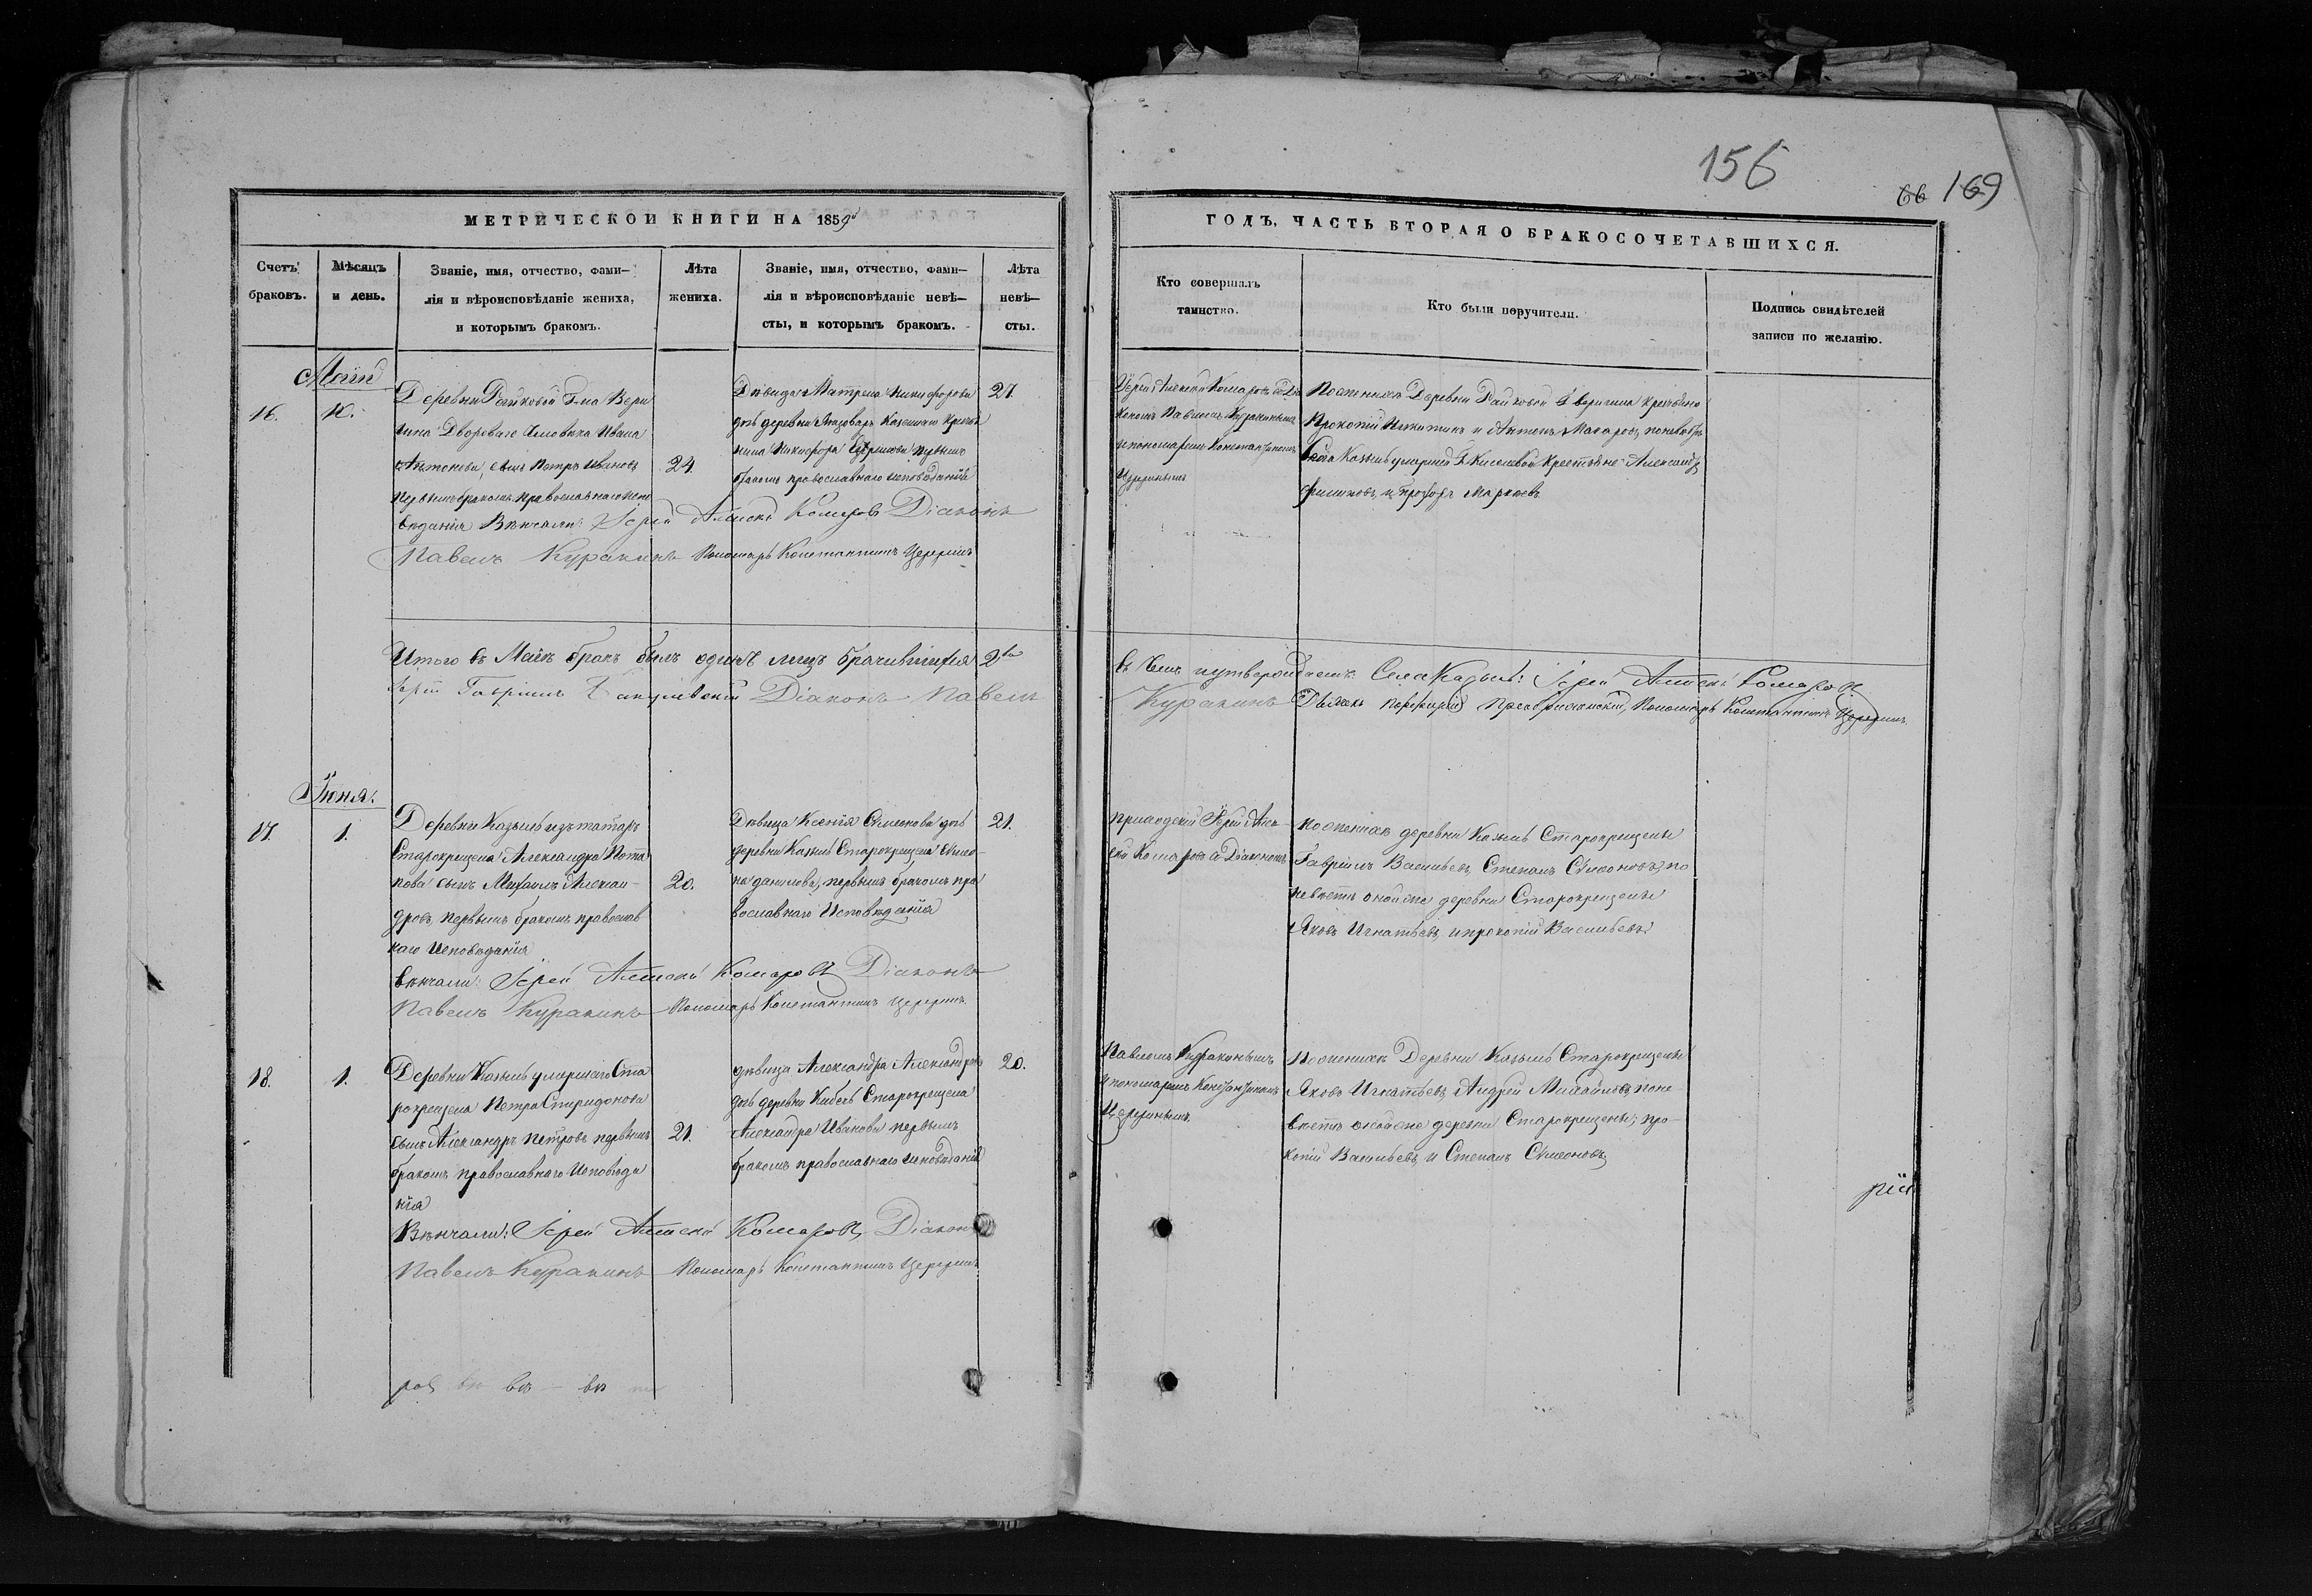 156
66 169
МЕТРИЧЕСКОЙ КНИГИ НА 1859й
ГОДЪ, ЧАСТЬ ВТОРАЯ О БРАКОСОЧЕТАВШИХСЯ.
Счетъ
браковъ.
Мѣсяцъ
и день.
Званіе, имя, отчество, фами-
лія и вѣроисповѣданіе жениха,
и которымъ бракомъ.
Лѣта
жениха.
Званіе, имя, отчество, фами-
лія и вѣроисповѣданіе невѣ-
сты, и которымъ бракомъ.
Лѣта
невѣ-
сты.
Кто совершалъ
таинство.
Кто были поручители.
Подпись свидѣтелей
записи по желанію.
16.
Деревни Райковой Г-на Вери
гина Двороваго Человека Ивана
Антонова, сынъ Петръ Ивановъ
первымъ бракомъ православнаго испо
веданія Венчали: Іерей Алексѣй Комаровъ Діаконъ
Павелъ Куракинъ Пономарь Константинъ
24.
Дѣвица Матрена Никифорова
дочь деревни
Никифора первымъ
бракомъ православнаго исповѣданія
21
Іерей Алексѣй Комаровъ съ Діа
кономъ Павломъ Куракинымъ
и пономаремъ Константиномъ
По женихѣ Деревни Райковой Г. Веригина крестьяне
Прокопій Никитинъ и Антонъ Макаровъ, по невѣстѣ
Крестьяне Александръ
Итого въ Маѣ бракъ былъ одинъ лицъ брачившихся 2
Іерей Гавріилъ Діаконъ Павелъ
въ чемъ и утверждаемъ Села Казыли: Іерей Алексѣй Комаровъ
Куракинъ Дьячекъ Порфирій Пономарь Константинъ
Іюня.
17.
1.
Деревни Казыли изъ татаръ
Старокрещена Александра Пота
пова сынъ Михаилъ Алексан-
дровъ, первымъ бракомъ православ
наго Исповѣданія
венчали: Іерей Алексѣй Комаровъ Діаконъ
Павелъ Куракинъ Пономарь Константинъ
20.
Дѣвица Ксенія Симеонова дочь
деревни Казыли Старокрещена Симео-
на Данилова, первымъ бракомъ пра
вославнаго Исповѣданія
21.
приходскій Іерей Алек
сѣй Комаровъ съ Діакономъ
По женихѣ деревни Казыли Старокрещены
Гавріилъ Васильевъ, Степанъ Симеоновъ, по
невѣстѣ оной же деревни Старокрещены
Яковъ Игнатьевъ, и прокопій Васильевъ
18.
1.
Деревни Казыли умершаго Ста
рокрещена Петра Спиридонова
сынъ Александръ Петровъ первымъ
бракомъ православнаго Исповѣда
нія
Вѣнчали: Іерей Алексѣй Комаровъ, Діаконъ
Павелъ Куракинъ Пономарь Константинъ
21.
дѣвица Александра Александрова
дочь деревни Старокрещена
Александра Иванова первымъ
бракомъ православнаго исповѣданія
20.
Павломъ Куракинымъ
и пономаремъ Константиномъ
По женихѣ Деревни Казыли Старокрещены
Яковъ Игнатьевъ, Андрей Михайловъ, по не-
вѣстѣ оной же деревни Старокрещены, про-
копій Васильевъ, и Степанъ Симеоновъ,